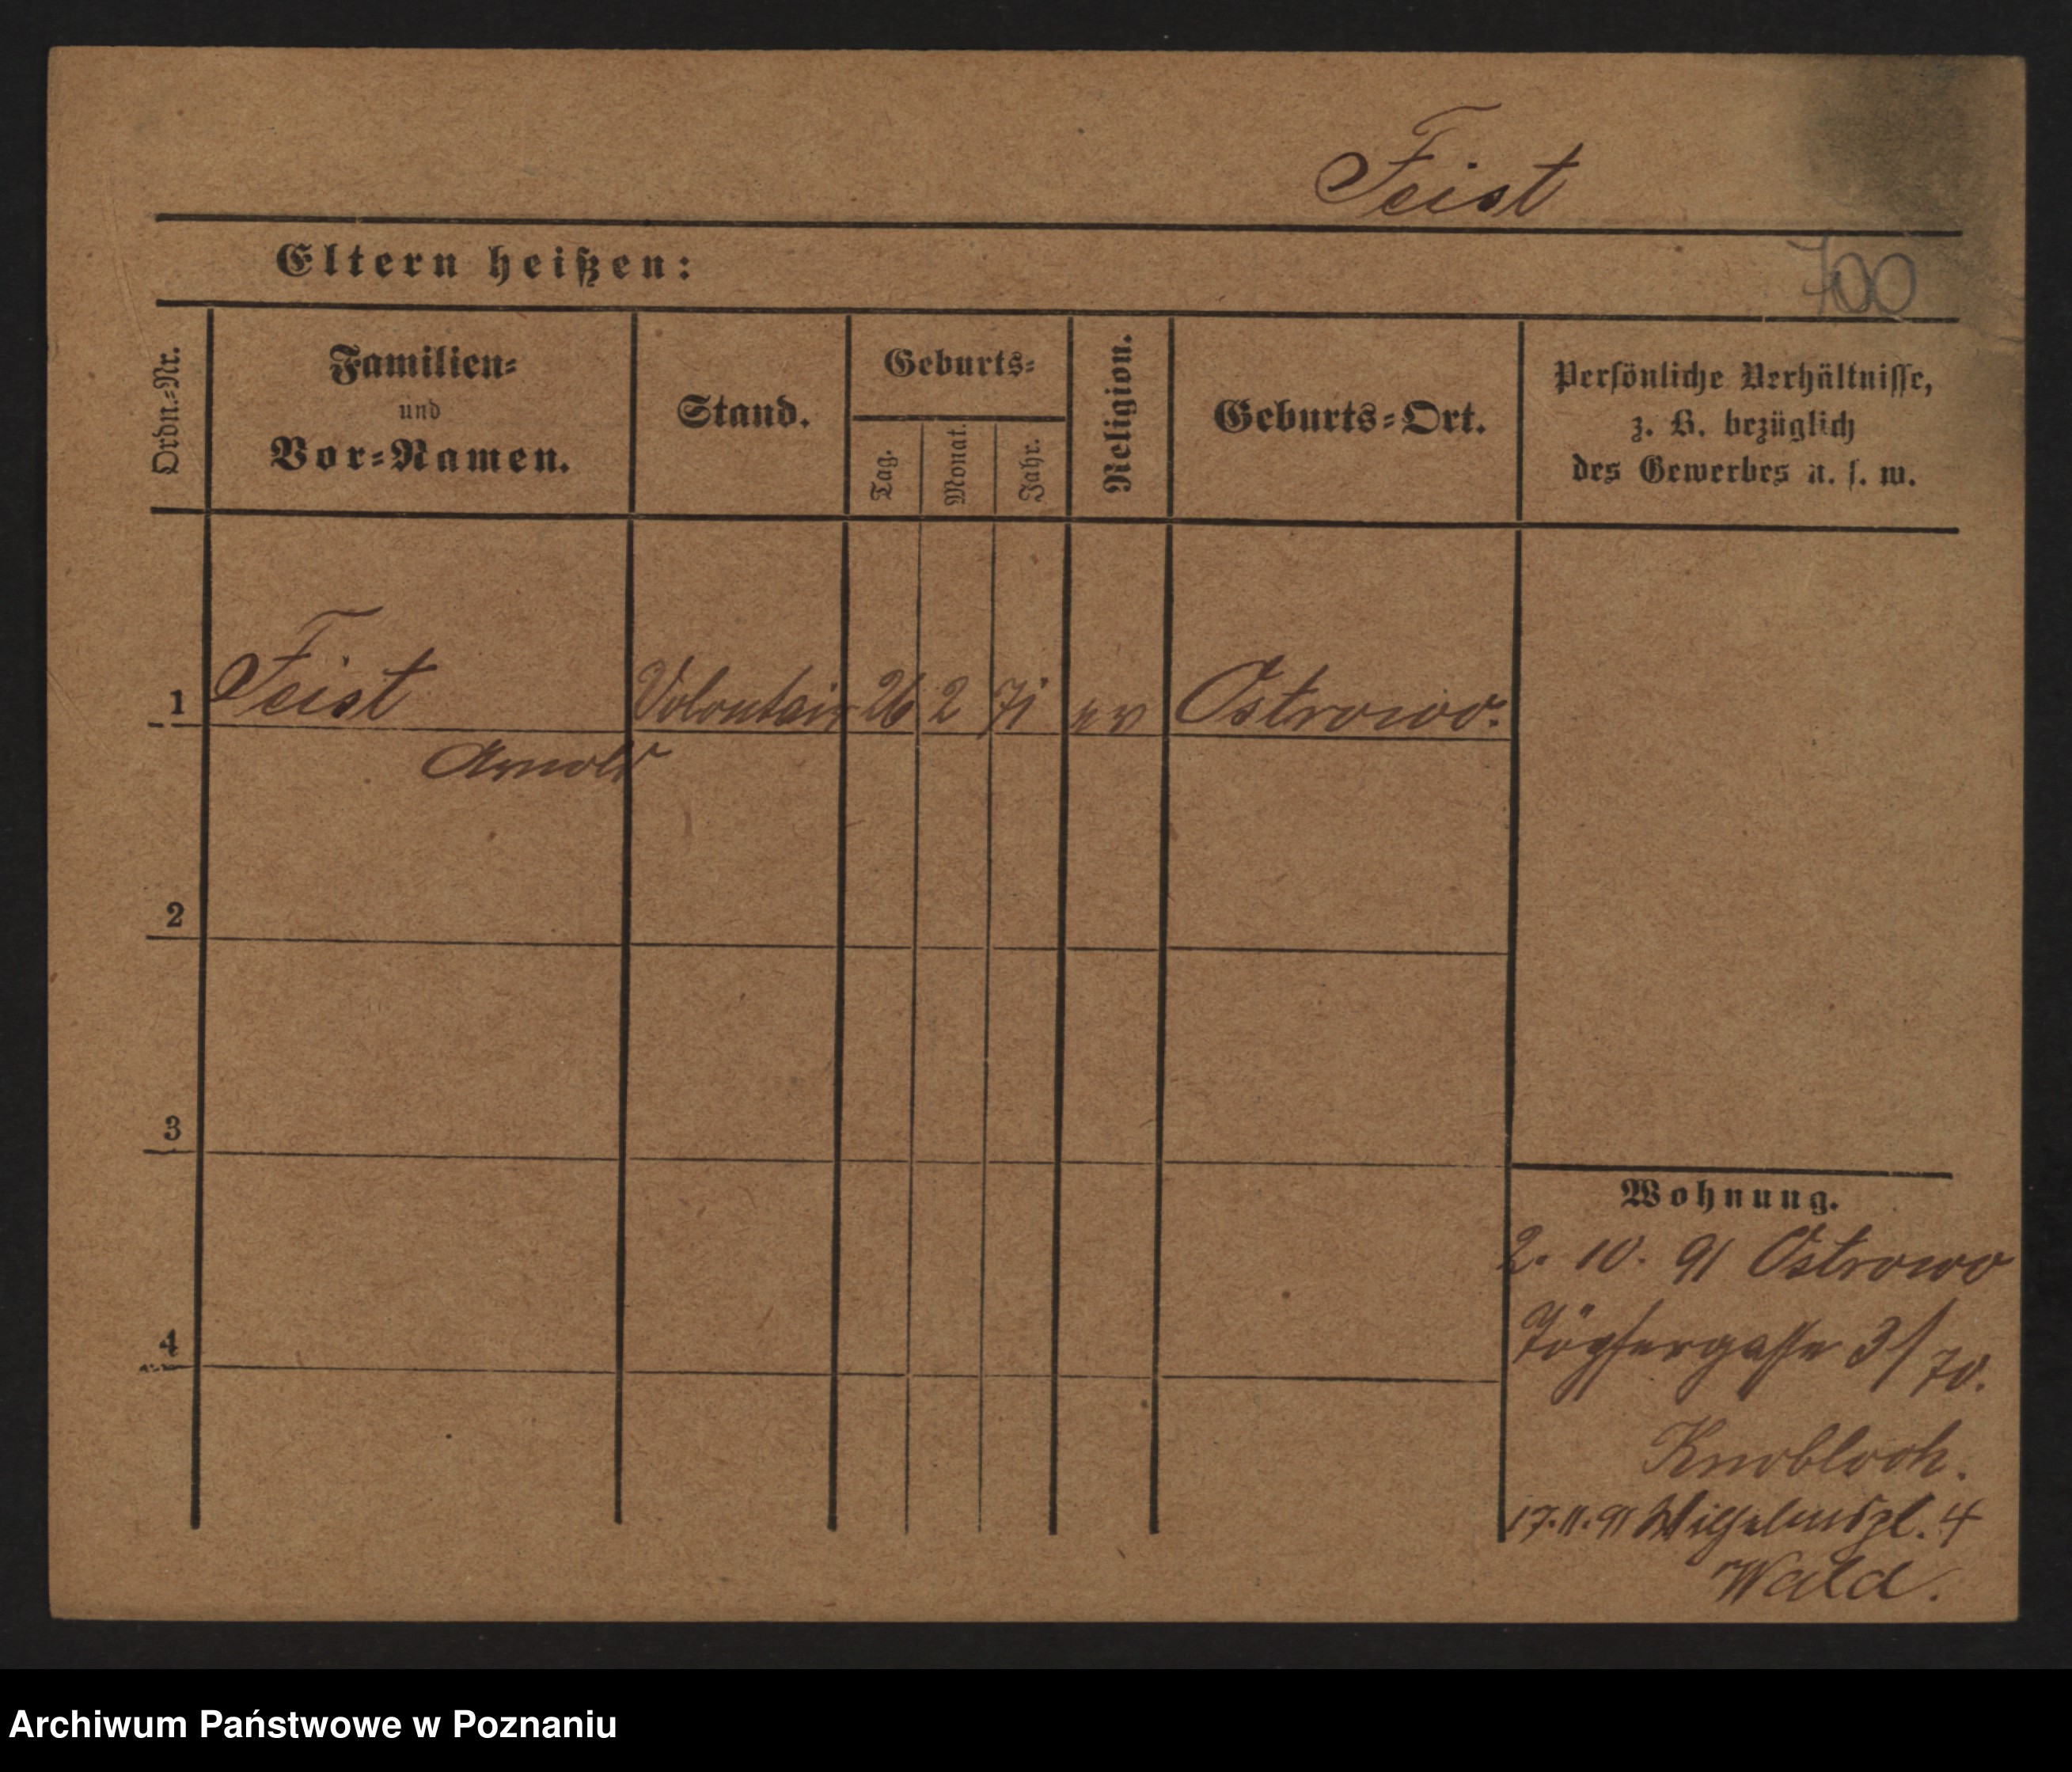 Feist
Eltern heißen:
700
Ordn.-Nr.
Familien-
und
Vor-Namen.
Stand.
Geburts-
Tag.
Monat.
Jahr.
Religion.
Geburts-Ort.
Persönliche Verhältnisse,
z. B. bezüglich
des Gewerbes u. s. w.
1 Feist Volontair 26 2 71 ev Ostrowo.
Arnold
2
3
4
Wohnung.
2. 10. 91 Ostrowo
Töpfergasse 3/70.
Knobloch.
17.11.91 Wilhelmspl. 4
Wald.
Archiwum Państwowe w Poznaniu